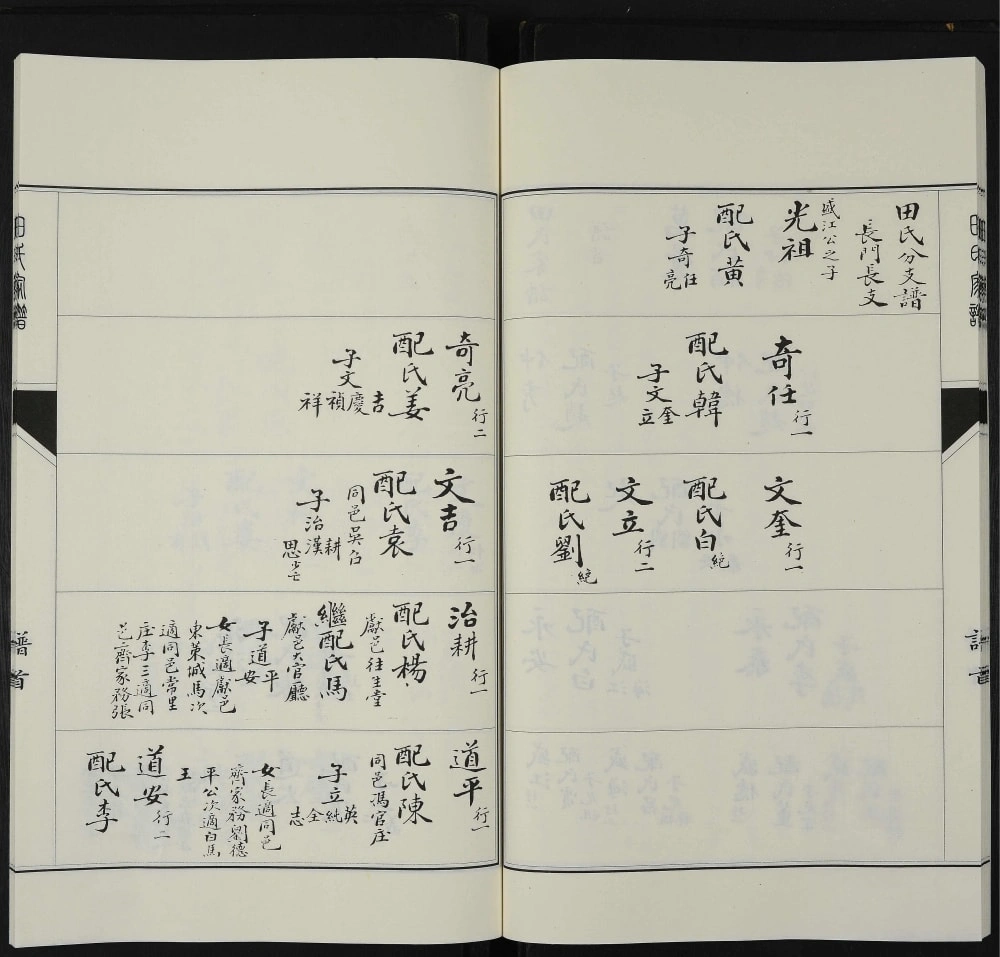 田氏分支譜
長門長支
盛江公之子
光祖
配氏黃
子奇任
亮
奇任 行一
配氏韓
子文奎
立
文奎 行一
配氏白 絶
文立 行二
配氏劉 絶
奇亮 行二
配氏姜
子文慶吉
禎
祥
文吉 行一
配氏袁
同邑吳召
子治漢耕
思少亡
治耕 行一
配氏楊
獻邑往生堂
繼配氏馬
獻邑大官廳
子道平
安
女長適獻邑
東菓城馬次
適同邑常里
庄李三適同
邑齊家務張
道平 行一
配氏陳
同邑馮官庄
子立純英
全
志
女長適同邑
齊家務劉德
平公次適白馬
王
道安 行二
配氏李
譜首